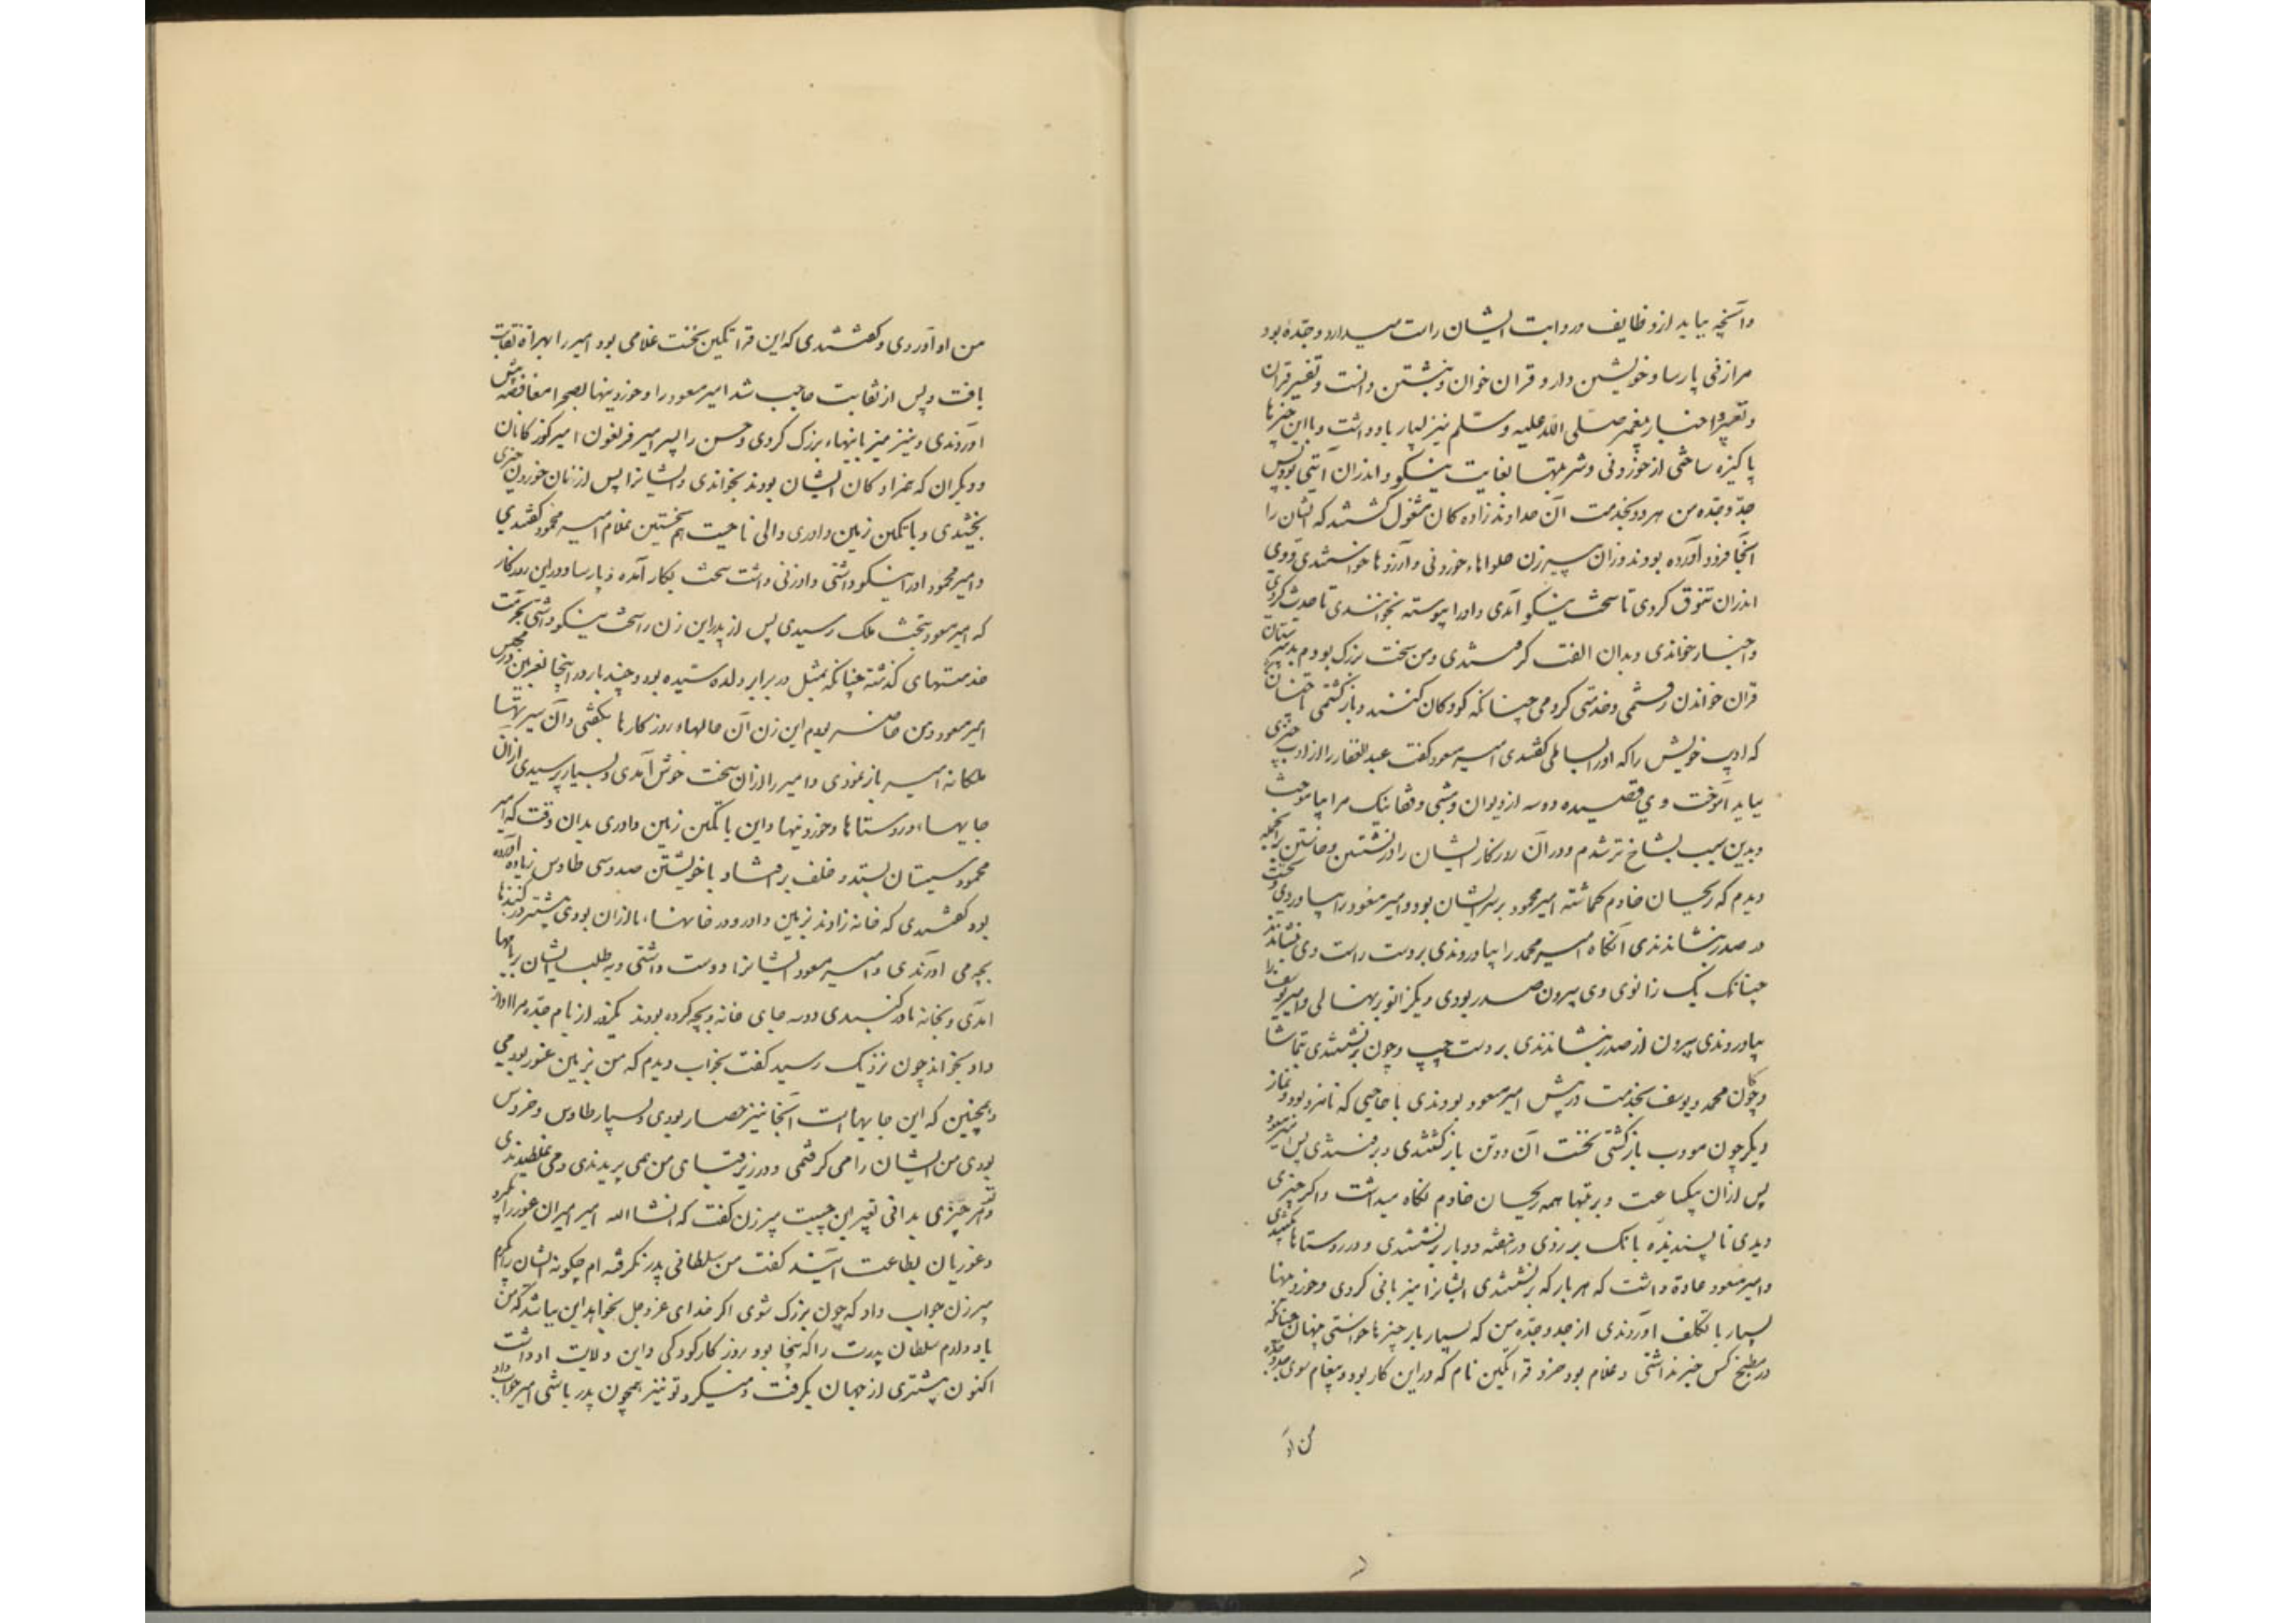 وآنچه بباید از وظایف و رواتب ایشان راست میدارد و جدّه بود
مرا زنی پارسا و خویشتن دار و قرآن خوان و نبشتن دانست و تفسیر قرآن
و تعبیر و اخبار پیغمبر صلی الله علیه وسلم نیز بسیار یاد داشت و با این چیزها
پاکیزه ساختی از خوردنی و شربتها بغایت نیکو و اندران آیتی بود پس
جدّ و جدّه من هر دو بخدمت آن خداوند زاده کان مشغول گشتند که ایشان را
آنجا فرود آورده بودند و زان پیرزن حلواها و خوردنی و آرزوها خواستندی و وی
اندران تنوق کردی تا سخت نیکو آمدی و او را پیوسته بخواندندی تا حدیث کردی
و اخبار خواندی و بدان الفت گرفتندی و من سخت بزرگ بودم بدبیرستان
قرآن خواندن رفتمی و خدمتی کردمی چنانکه کودکان کنند و بازگشتمی تا چنان
که ادیب خویش را که او را بسالمی گفتندی امیر مسعود گفت عبدالغفار را از ادب چیزی
بباید آموخت وی قصیده دو سه از دیوان متنبی و قفا نبک مرا بیاموخت
و بدین سبب گستاخ تر شدم و در آن روزگار ایشان را در نشستن و خاستن بر آنجمله
دیدم که ریحان خادم گماشته امیر محمود بر سر ایشان بود و امیر مسعود را بیاوردی و نخست
در صدر بنشاندندی آنگاه امیر محمد را بیاوردندی بر دست راست وی بنشاندند
چنانک یک زانوی وی بیرون صدر بودی و یک زانو بر نهالی و امیر یوسف را
بیاوردندی بیرون از صدر بنشاندندی بر دست چپ و چون برنشستندی بتماشا
و چوگان محمد و یوسف بخدمت در پیش امیر مسعود بودندی با حاجبی که نامزد بود و نماز
دیگر چون مودب بازگشتی نخست آن دو تن بازگشتندی و برفتندی پس امیر مسعود
پس از آن بیکساعت و ترتیبها همه ریحان خادم نگاه میداشت و اگر چیزی
دیدی ناپسندیده بانک بر زدی و در هفته دو بار برنشستندی و در روستاها بگشتندی
و امیر مسعود عادة داشت که هر بار که برنشستندی ایشانرا میزبانی کردی و خوردنیها
بسیار با تکلف آوردندی از جد و جدّه من که بسیار بار چیزها خواستی پنهان چنانکه
در مطبخ کس خبر نداشتی و غلام بود خرد قراتگین نام که در این کار بود و پیغام سوی جد و جده
من او
من او آوردی و گفتندی که این قراتگین نخست غلامی بود امیر را بهراة نقابت
یافت و پس از نقابت حاجب شد امیر مسعود را و خوردنیها بصحرا مغافصه پیش
آوردندی و نیز میزبانیهاء بزرگ کردی و حسن را پسر امیر فریغون امیر گوزکانان
و دیگران که همزاد کان ایشان بودند بخواندی و ایشانرا پس از نان خوردن چیزی
بخشیدی و باتگین زمین داوری والی ناحیت هم نخستین غلام امیر محمود گفتندی
و امیر محمود او را نیکو داشتی و او زنی داشت سخت بکار آمده و پارسا و در این روزگار
که امیر مسعود بتخت ملک رسیدی پس از پدر این زن را سخت نیکو داشتی بحرمت
خدمتهای گذشته چنانکه بمثل در برابر والده سیده بود و چند بار در اینجا بغزنین در مجلس
امیر مسعود و من حاضر بودم این زن آن حالهاء روزگارها بگفتی و آن سیرتهاء
ملکانه امیر بازنمودی و امیر را از آن سخت خوش آمدی و بسیار پرسیدی از آن
جایها و روستاها و خوردنیها و این باتگین زمین داوری بدان وقت که امیر
محمود سیستان بستد و خلف بر افتاد با خویشتن صد و سی طاوس نر و ماده آورده
بود گفتندی که خانه زادند بزمین داور و در خانهاء ما از آن بودی بیشتر در گنبدها
بچه می آوردندی و امیر مسعود ایشانرا دوست داشتی و بطلب ایشان بر بامها
آمدی و بخانه ما در گنبدی دو سه جای خانه و بچه کرده بودند یکروز از بام جدّه مرا آواز
داد بخواند چون نزدیک رسید گفت بخواب دیدم که من بزمین غور بودمی
و همچنین که این جایها است آنجا نیز حصار بودی و بسیار طاوس و خروس
بودی من ایشان را می گرفتمی و در زیر قبای من همی پریدندی و می غلطیدندی
و تو هر چیزی بدانی تعبیر این چیست پیرزن گفت که انشاالله امیر امیران غور را بگیرد
و غوریان بطاعت آیند گفت من سلطانی پدر نگرفته ام چگونه ایشان را بگیرم
پیرزن جواب داد که چون بزرگ شوی اگر خدای عز و جل بخواهد این بباشد که من
یاد دارم سلطان پدرت را که اینجا بود بروزگار کودکی و این ولایت او داشت
اکنون بیشتری از جهان بگرفت و میگیرد تو نیز همچون پدر باشی امیر جواب داد